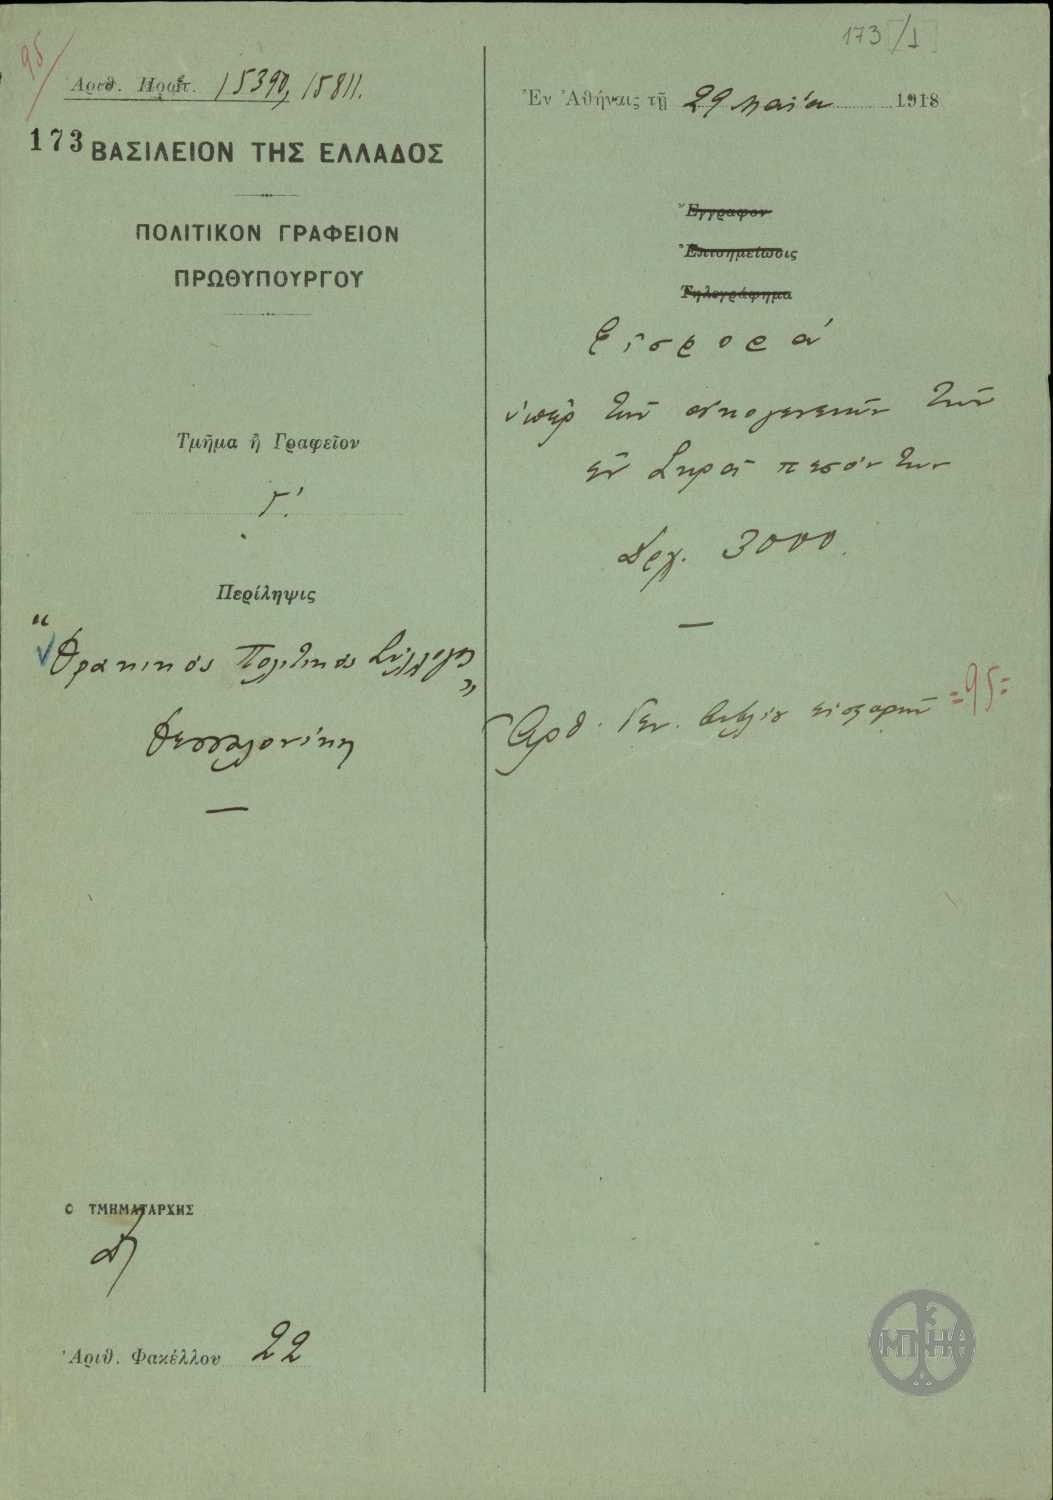 95
Αριθ. Πρωτ. 15390, 15811.
173
ΒΑΣΙΛΕΙΟΝ ΤΗΣ ΕΛΛΑΔΟΣ
ΠΟΛΙΤΙΚΟΝ ΓΡΑΦΕΙΟΝ
ΠΡΩΘΥΠΟΥΡΓΟΥ
Τμῆμα ἢ Γραφεῖον
Γ'.
Περίληψις
"Θρακικὸς Πολιτικὸς Σύλλογος"
Θεσσαλονίκη
Ο ΤΜΗΜΑΤΑΡΧΗΣ
Ἀριθ. Φακέλλου 22
173/1
Ἐν Ἀθήναις τῇ 29 Μαΐου 1918
Ἔγγραφον
Ἐπισημείωσις
Τηλεγράφημα
Εἰσφορά
ὑπὲρ τῶν οἰκογενειῶν τῶν
ἐν Σκρᾶ πεσόντων
Δρχ. 3000.
Ἀριθ. Γεν. βιβλίου εἰσφορῶν =95=
ΜΠΝΗΑ